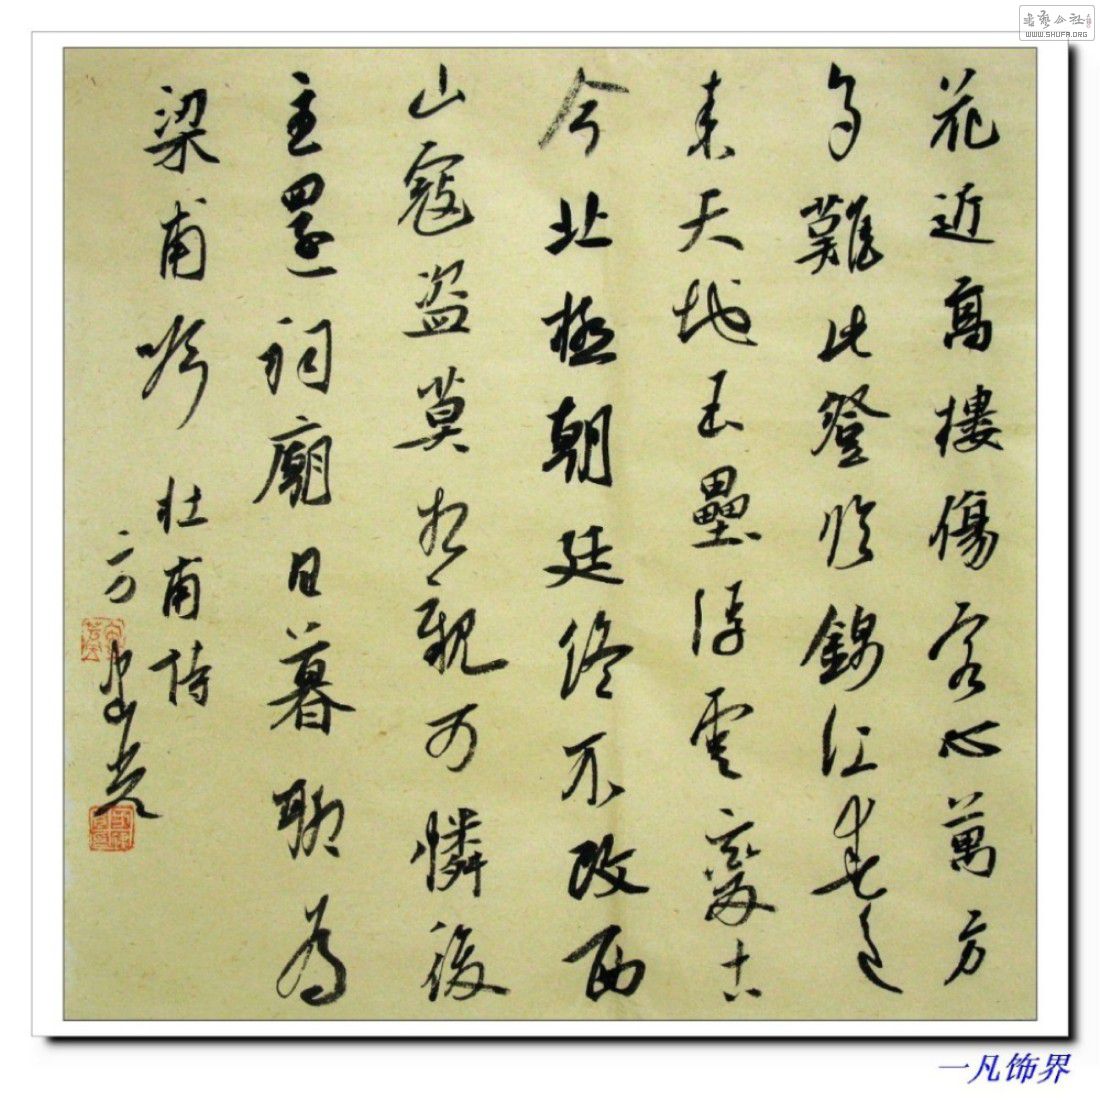 花近高樓傷客心萬方
多難此登臨錦江春色
來天地玉壘浮雲變古
今北極朝廷終不改西
山寇盜莫相親可憐後
主還祠廟日暮聊為
梁甫吟
杜甫詩
書藝公社
WWW.SHUFA.ORG
一凡饰界